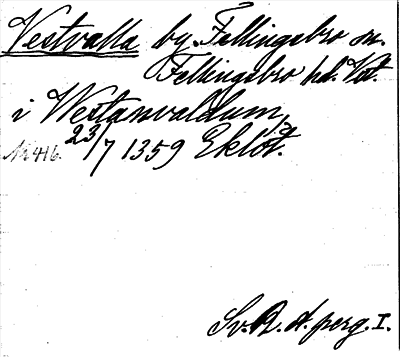 Vestvalla by, Fellingsbro sn.
Fellingsbro hd. Vstm.
i Westanvaldum,
Nr 416. 23/7 1359 Eklöt.
Sv. R. A. perg. I.